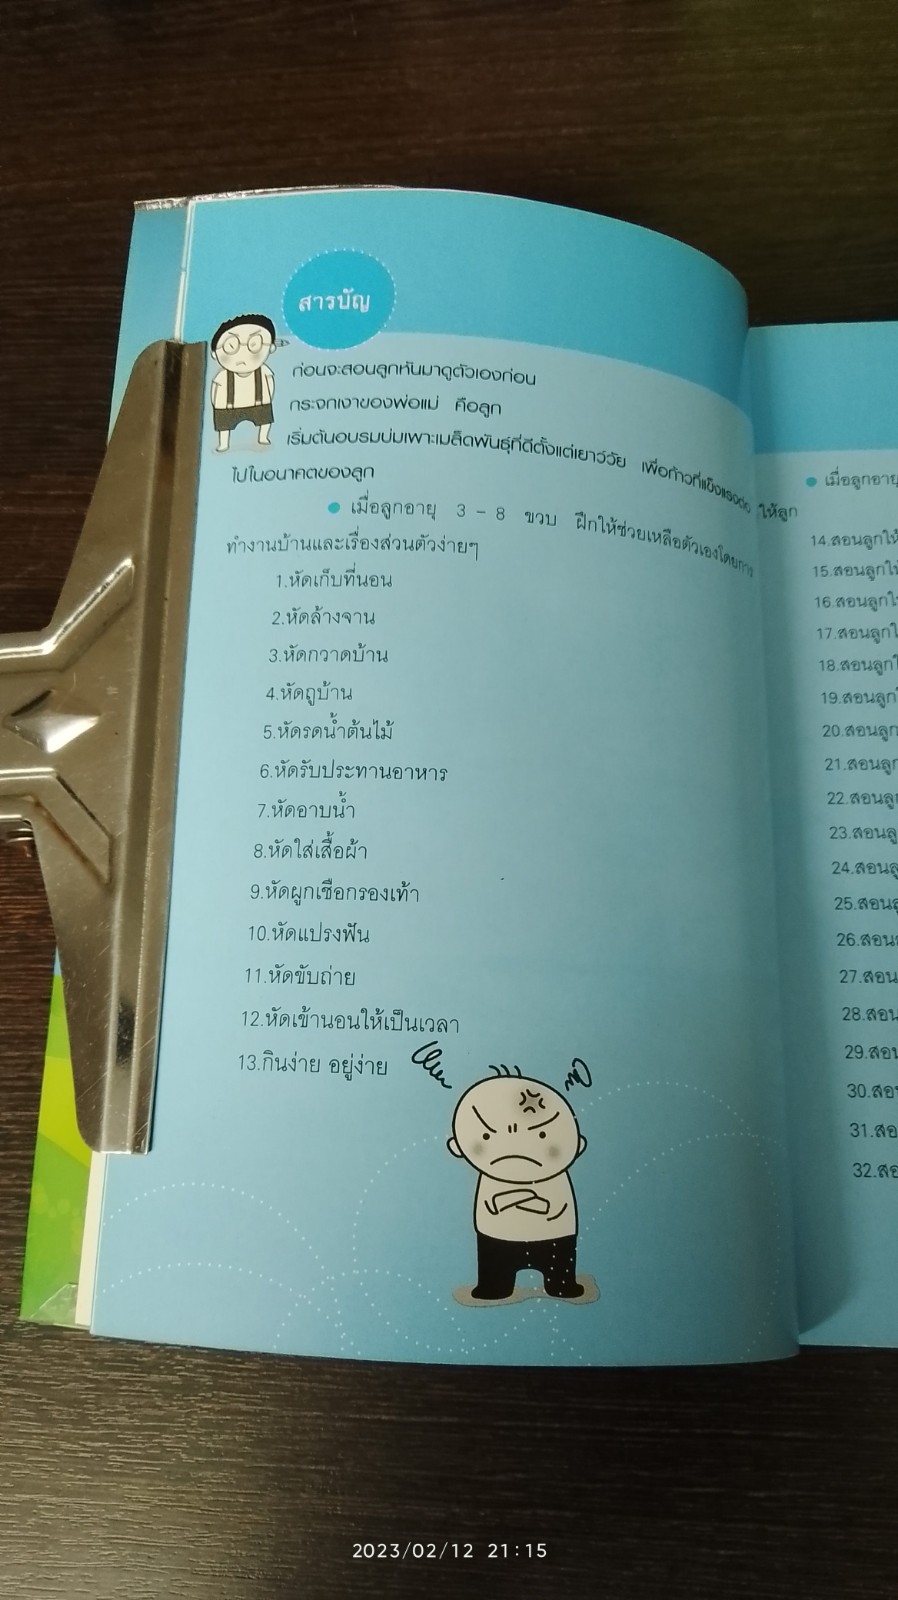 สารบัญ
ก่อนจะสอนลูกหันมาดูตัวเองก่อน
กระจกเงาของพ่อแม่ คือลูก
เริ่มต้นอบรมบ่มเพาะเมล็ดพันธุ์ที่ดีตั้งแต่เยาว์วัย เพื่อก้าวที่แข็งแรงต่อ
ไปในอนาคตของลูก
● เมื่อลูกอายุ 3 - 8 ขวบ ฝึกให้ช่วยเหลือตัวเองโดยการ ให้ลูก
ทำงานบ้านและเรื่องส่วนตัวง่ายๆ
1.หัดเก็บที่นอน
2.หัดล้างจาน
3.หัดกวาดบ้าน
4.หัดถูบ้าน
5.หัดรดน้ำต้นไม้
6.หัดรับประทานอาหาร
7.หัดอาบน้ำ
8.หัดใส่เสื้อผ้า
9.หัดผูกเชือกรองเท้า
10.หัดแปรงฟัน
11.หัดขับถ่าย
12.หัดเข้านอนให้เป็นเวลา
13.กินง่าย อยู่ง่าย
● เมื่อลูกอายุ
14.สอนลูกให้
15.สอนลูกให้
16.สอนลูกให้
17.สอนลูกใ
18.สอนลูกใ
19.สอนลูกใ
20.สอนลูก
21.สอนลูก
22.สอนลู
23.สอนลู
24.สอนลู
25.สอนลู
26.สอน
27.สอน
28.สอน
29.สอน
30.สอ
31.สอ
32.สอ
2023/02/12 21:15